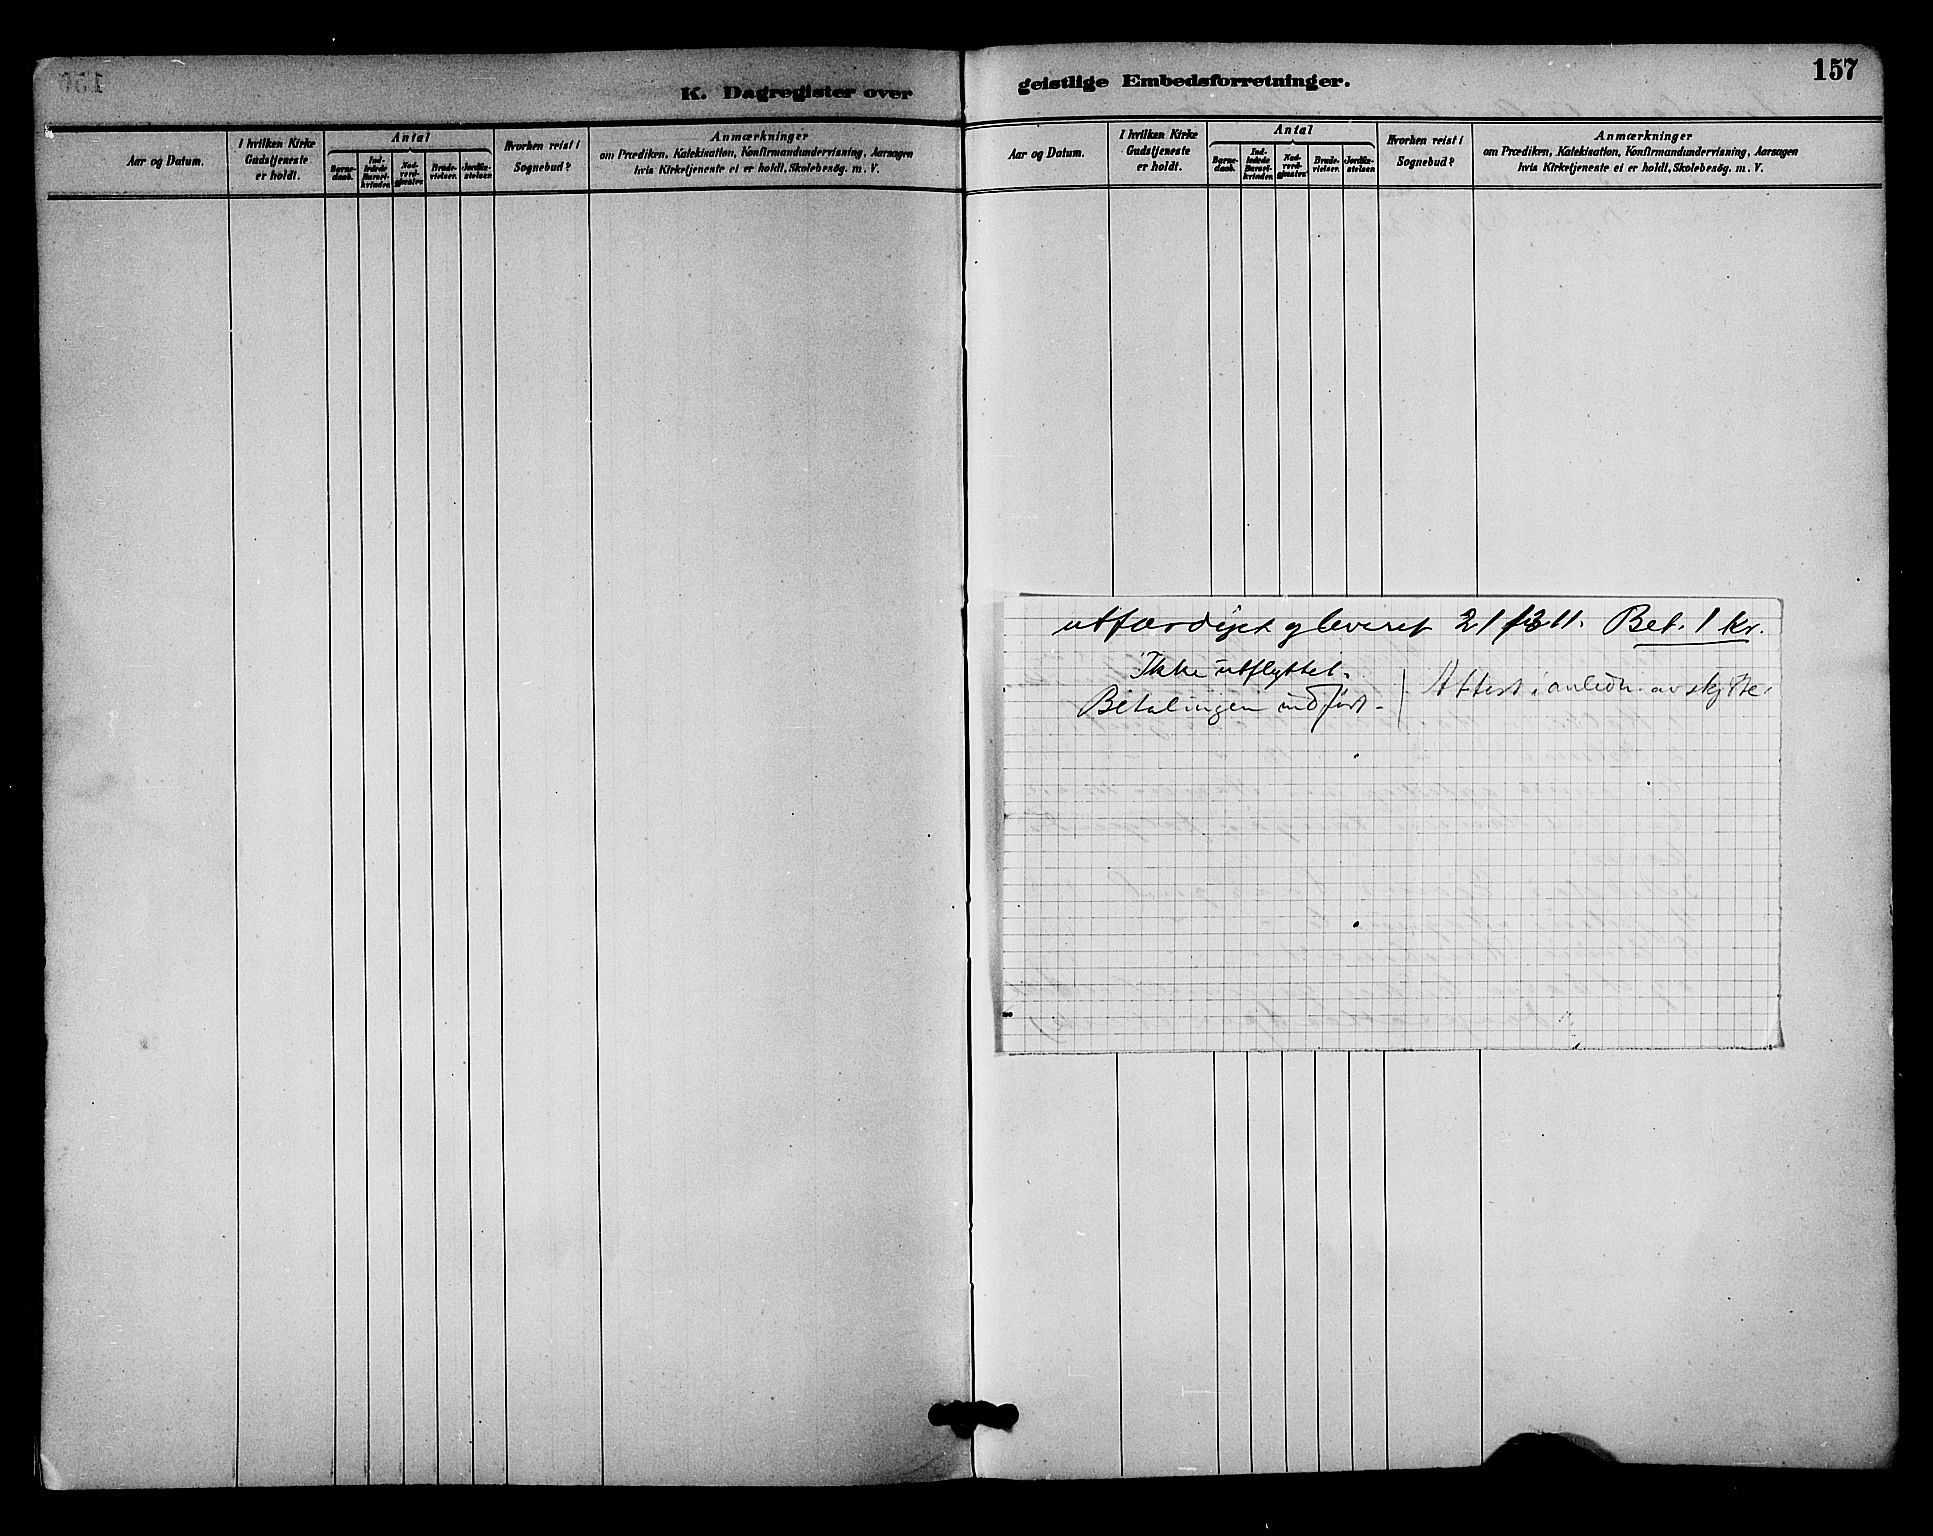 K. Dagregister over
Aar og Datum.
I hvilken Kirke
Gudstjeneste
er holdt.
Antal
Barne-
daab.
Ind-
ledede
Barsel-
kvinder.
Nad-
verd-
gjester.
Brude-
vielser.
Jordfæ-
stelser.
Hvorhen reist i
Sognebud?
Anmærkninger
om Prædiken, Katekisation, Konfirmandundervisning, Aarsagen
hvis Kirketjeneste ei er holdt, Skolebesøg. m. V.
geistlige Embedsforretninger.
157
Aar og Datum.
I hvilken Kirke
Gudstjeneste
er holdt.
Antal
Barne-
daab.
Ind-
ledede
Barsel-
kvinder.
Nad-
verd-
gjester.
Brude-
vielser.
Jordfæ-
stelser.
Hvorhen reist i
Sognebud?
Anmærkninger
om Prædiken, Katekisation, Konfirmandundervisning, Aarsagen
hvis Kirketjeneste ei er holdt, Skolebesøg. m. V.
utfærdiget og leveret 21 11. Bet. 1 kr.
Ikke utflyttet.
Betalingen indført.
Attest i anledn. av